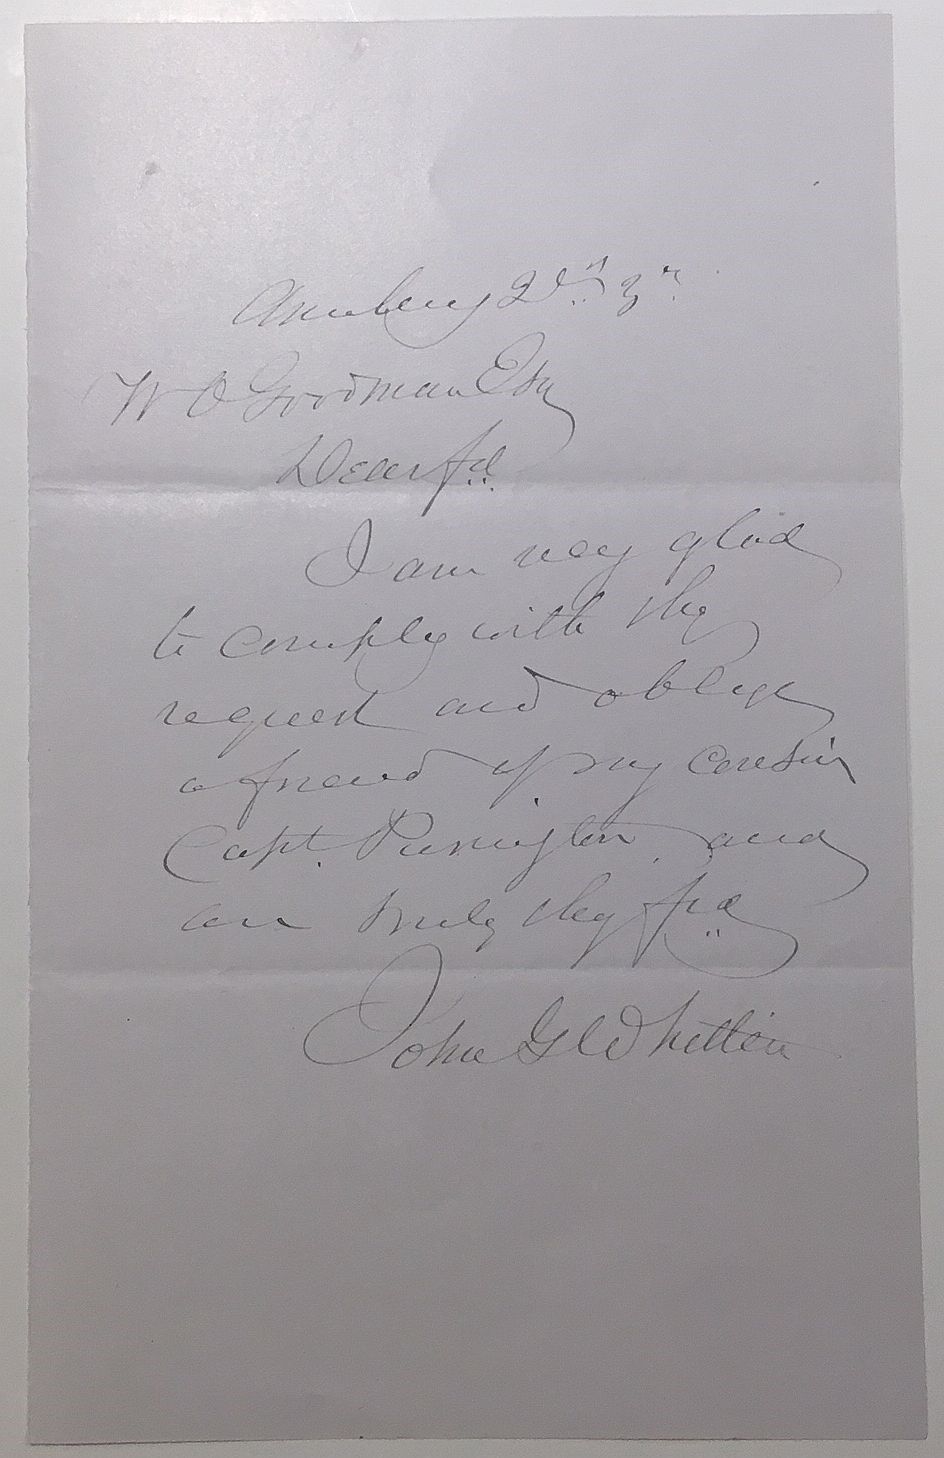 Amesbury 2d. 3m.
W O Goodman Esq
Dear fd.
I am very glad
to comply with thy
request and oblige
a friend of my cousin
Capt. Purington, and
am truly thy frd
John G Whittier